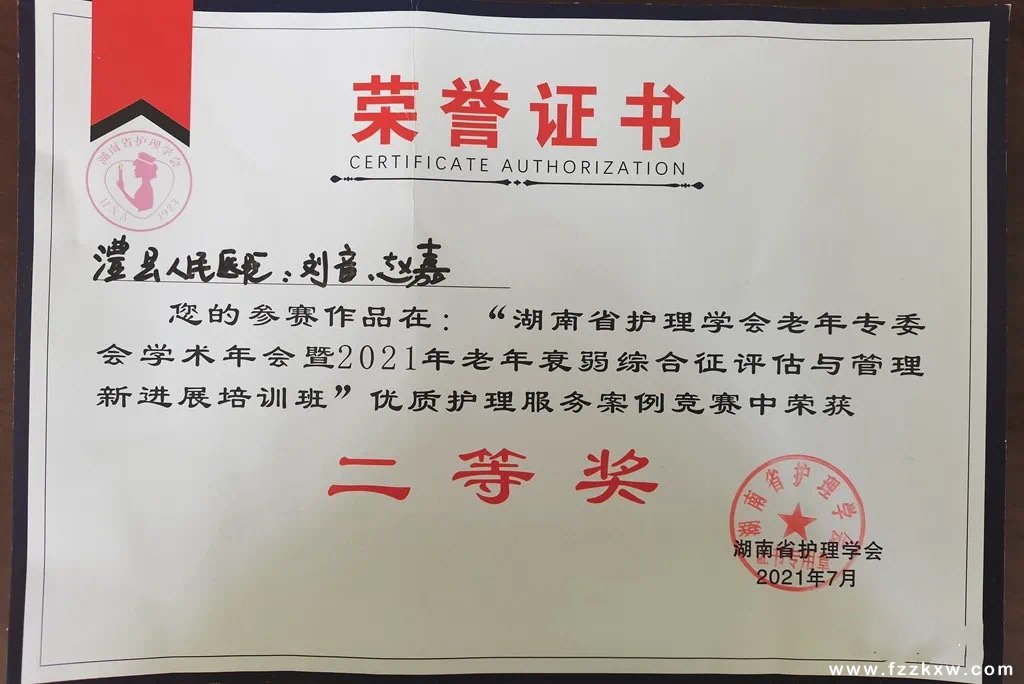 荣誉证书
CERTIFICATE AUTHORIZATION
湖南省护理学会
HNNA 1923
澧县人民医院:刘音、赵嘉
您的参赛作品在:“湖南省护理学会老年专委
会学术年会暨2021年老年衰弱综合征评估与管理
新进展培训班”优质护理服务案例竞赛中荣获
二等奖
湖南省护理学会
证书专用章
湖南省护理学会
2021年7月
www.fzzkxw.com